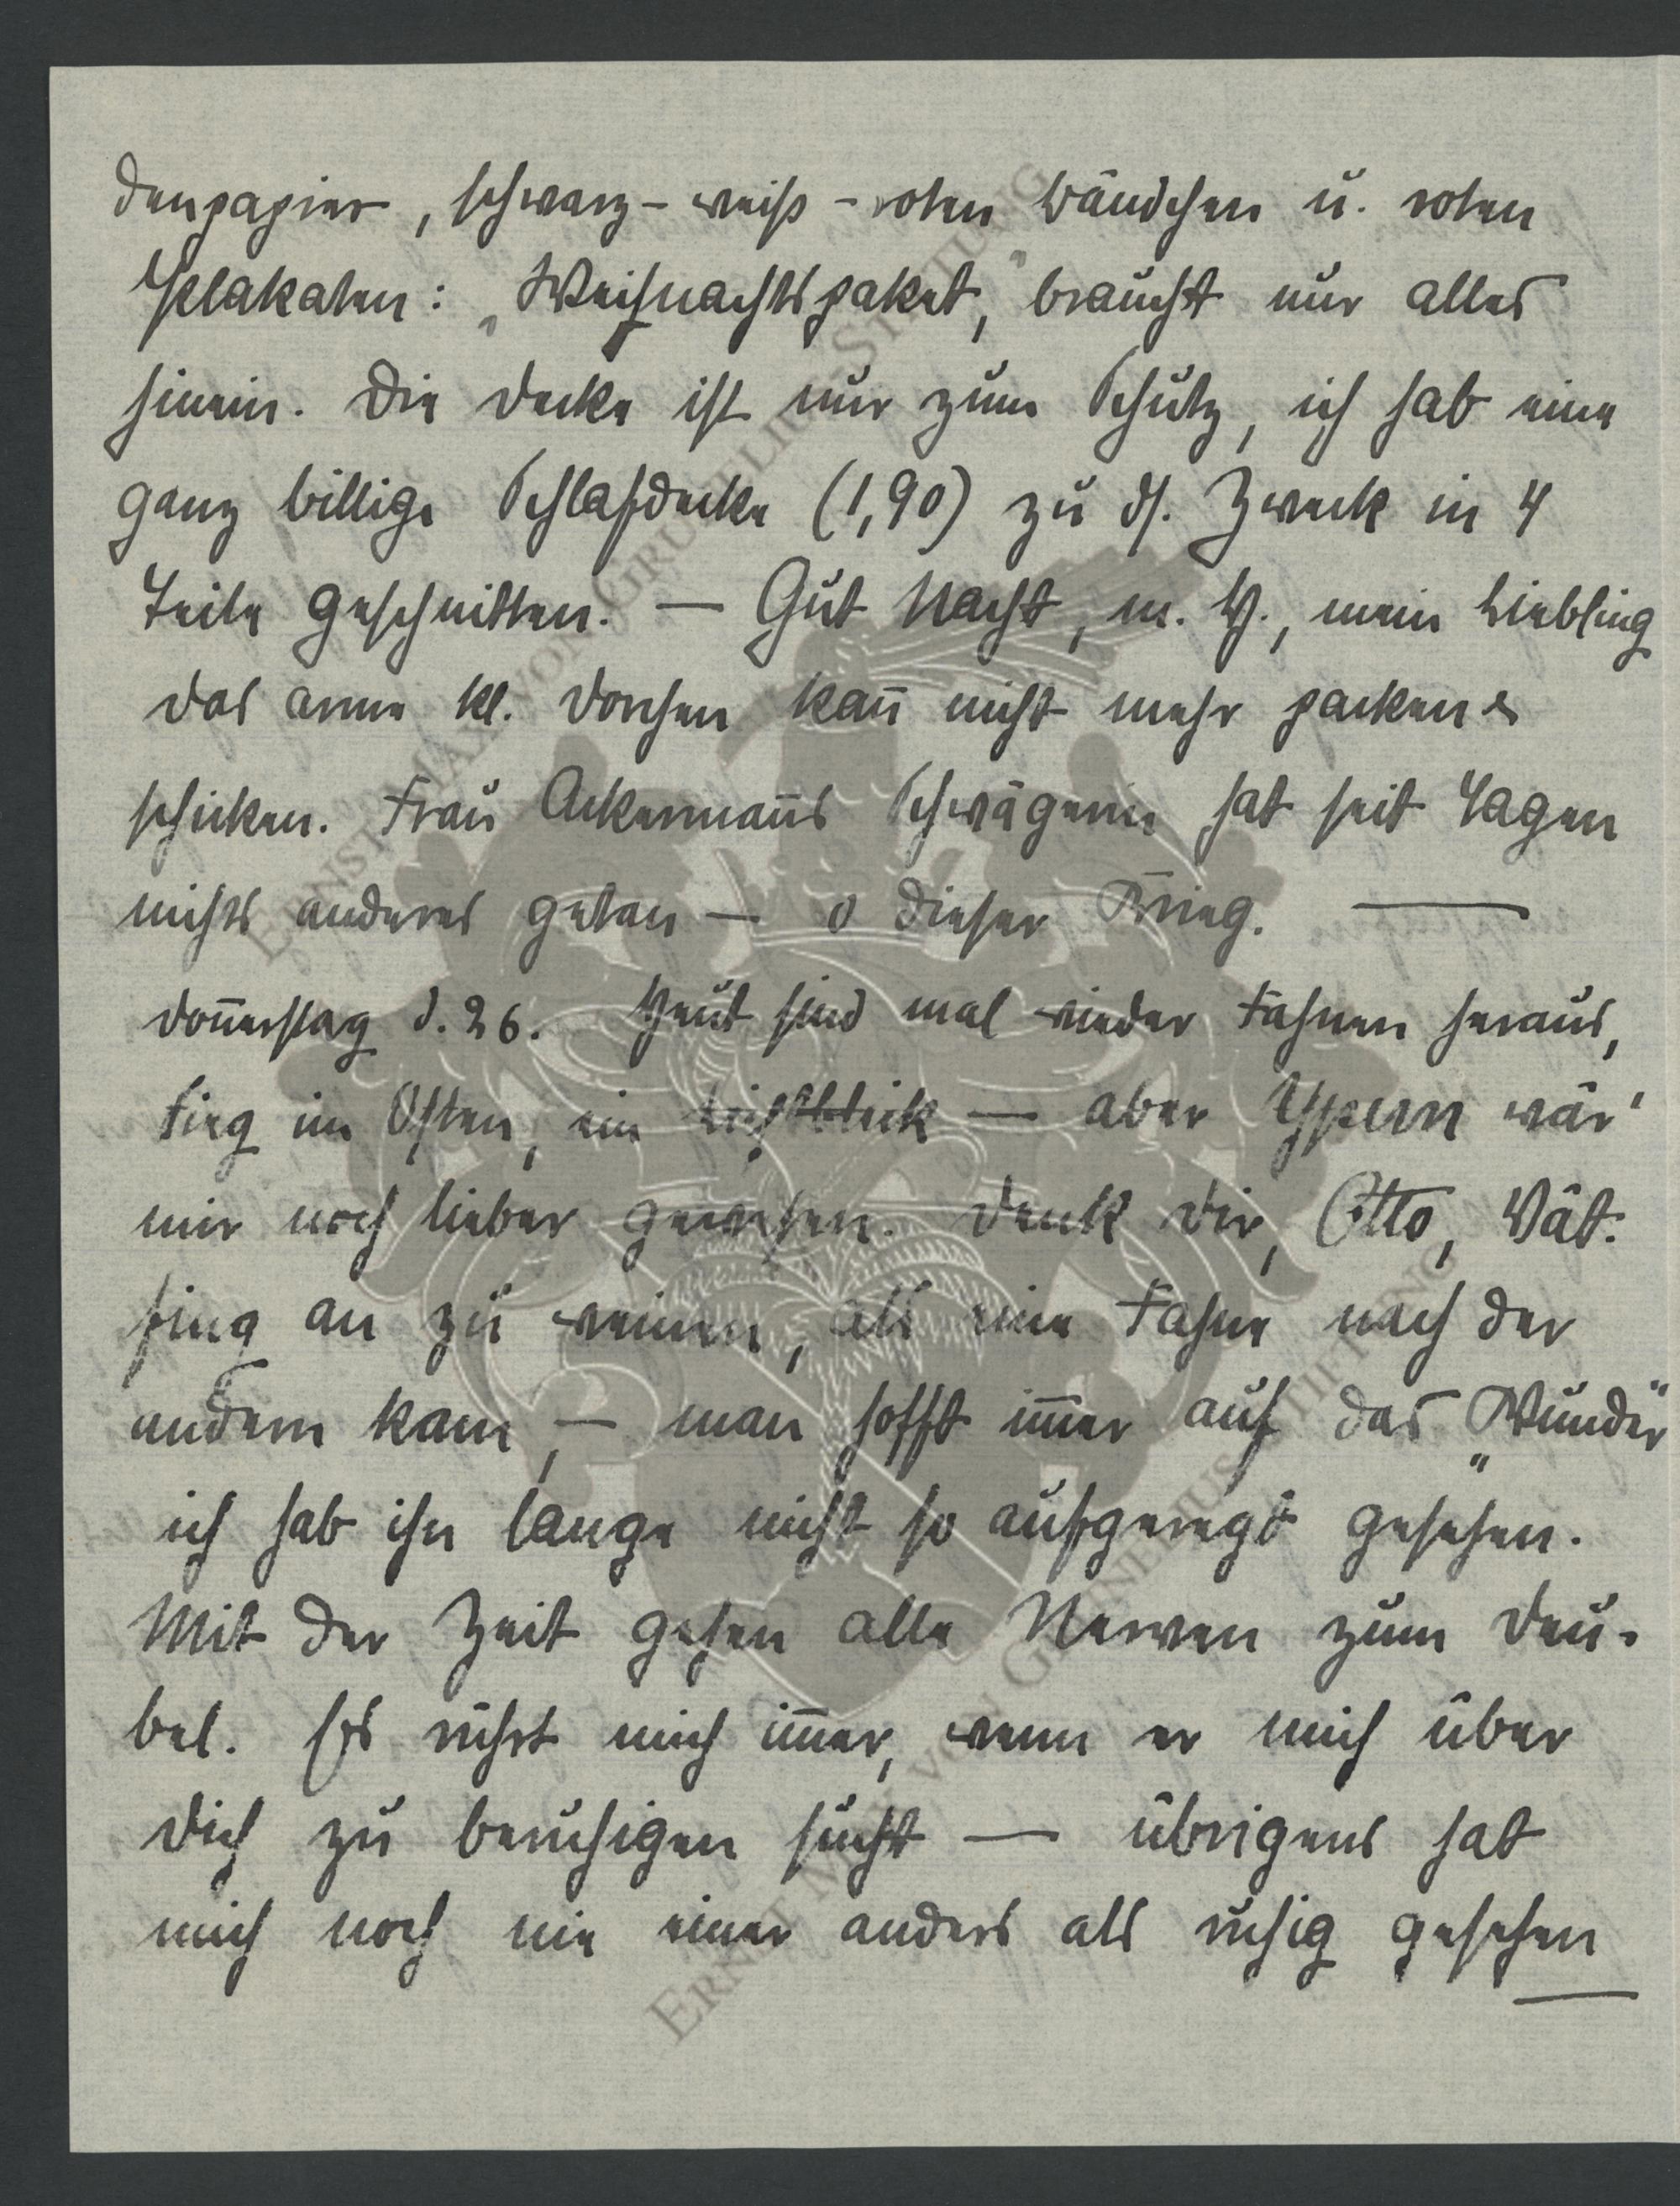 denpapier, schwarz-weiß-roten Bändchen u. roten
Plakaten: „Weihnachtspaket", braucht nur alles
hinein. Die Decke ist nur zum Schutz, ich hab eine
ganz billige Schlafdecke (1,90) zu ds. Zweck in 4
Teile geschnitten. — Gut Nacht, m. H., mein Liebling
das arme kl. Dorchen kan̄ nicht mehr packen &
schicken. Frau Ackerman̄s Schwägerin hat seit Tagen
nichts anderes getan — o dieser Krieg. —
Don̄erstag d. 26. Heut sind mal wieder Fahnen heraus,
Sieg im Osten, ein Lichtblick — aber Ypern wär'
mir noch lieber gewesen. Denk Dir, Otto, Vät.
fing an zu weinen, als eine Fahne nach der
andern kam, — man hofft im̄er auf das „Wunder"
ich hab ihn lange nicht so aufgeregt gesehen.
Mit der Zeit gehen alle Nerven zum Deu-
bel. Es rührt mich im̄er, wenn er mich über
Dich zu beruhigen sucht — übrigens hat
mich noch nie einer anders als ruhig gesehen —
ERNST MAX VON GRUNELIUS-STIFTUNG
ERNST MAX VON GRUNELIUS-STIFTUNG